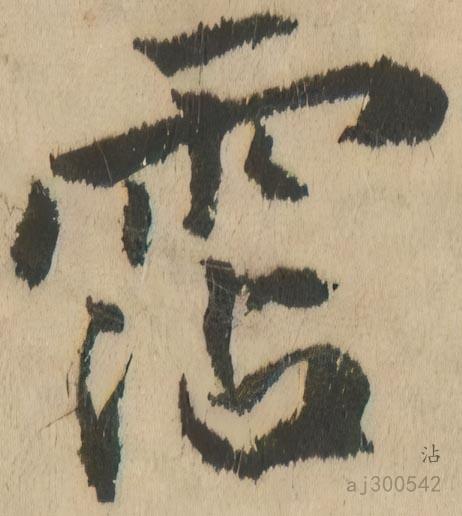 霑
沾
aj300542